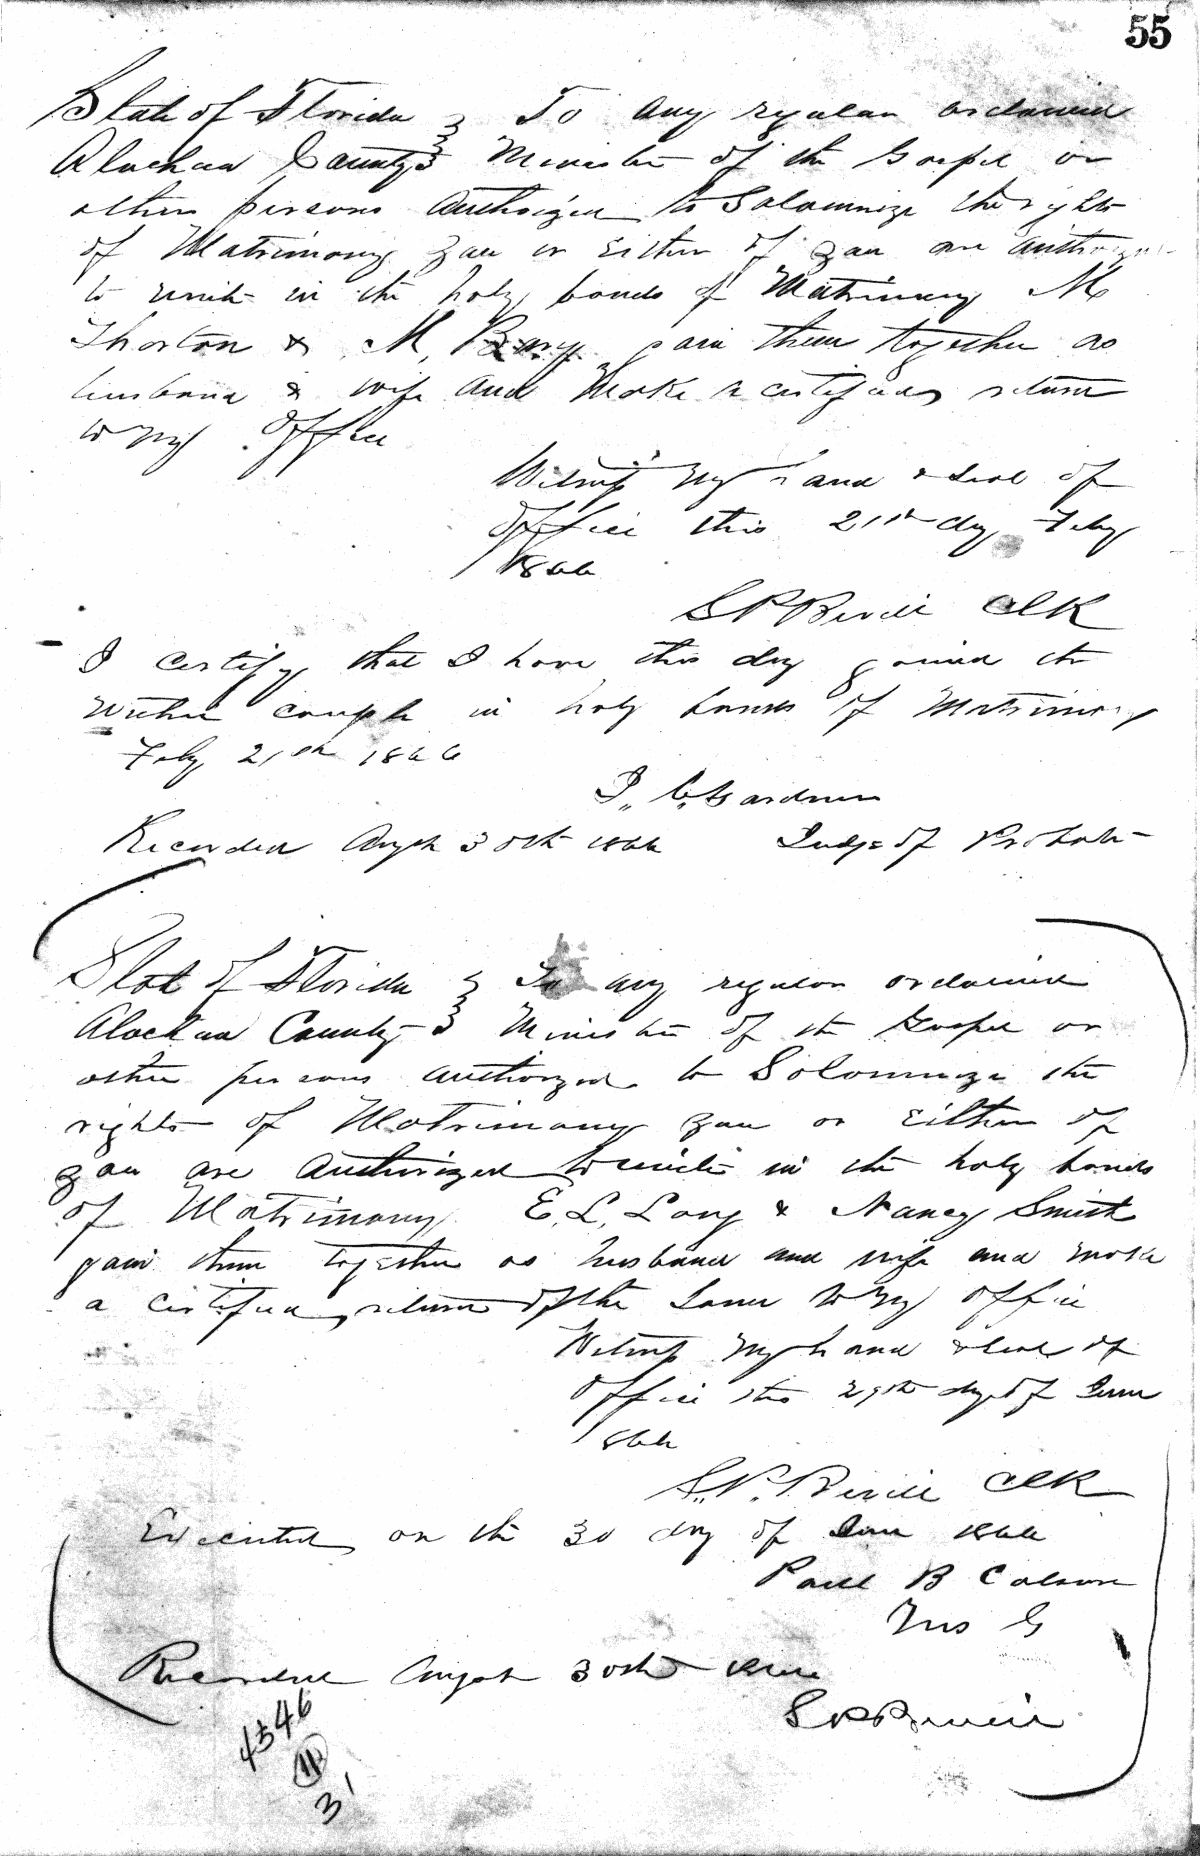 55
State of Florida } To any regular ordained
Alachua County } Minister of the Gospel or
other persons Authorized to Solomnize the rights
of Matrimony you or Either of you are authorized
to unite in the holy bonds of Matrimony M
Thorton & M, Bary join them together as
husband & wife and Make a certified return
to my Office
Witness my hand & seal of
office this 21st day Feby
1866
S P Bevill ClK
I certify that I have this day joined the
Within couple in holy bonds of Matrimony
Feby 21st 1866
J. C. Gardner
Recorded Augst 30th 1866 Judge of Probate
State of Florida } To any regular ordained
Alachua County } Minister of the Gospel or
other persons authorized to Solomnize the
rights of Matrimony you or Either of
you are Authorized to unite in the holy bonds
of Matrimony E. L. Long & Nancy Smith
join them together as husband and wife and make
a certified return of the Same to my office
Witness my hand & seal of
office this 29th day of June
1866
S. P. Bevill ClK
Executed on the 30 day of June 1866
Paul B Colson
M G
Recorded Augst 30th 1866
S P Bevill
4546
11
31